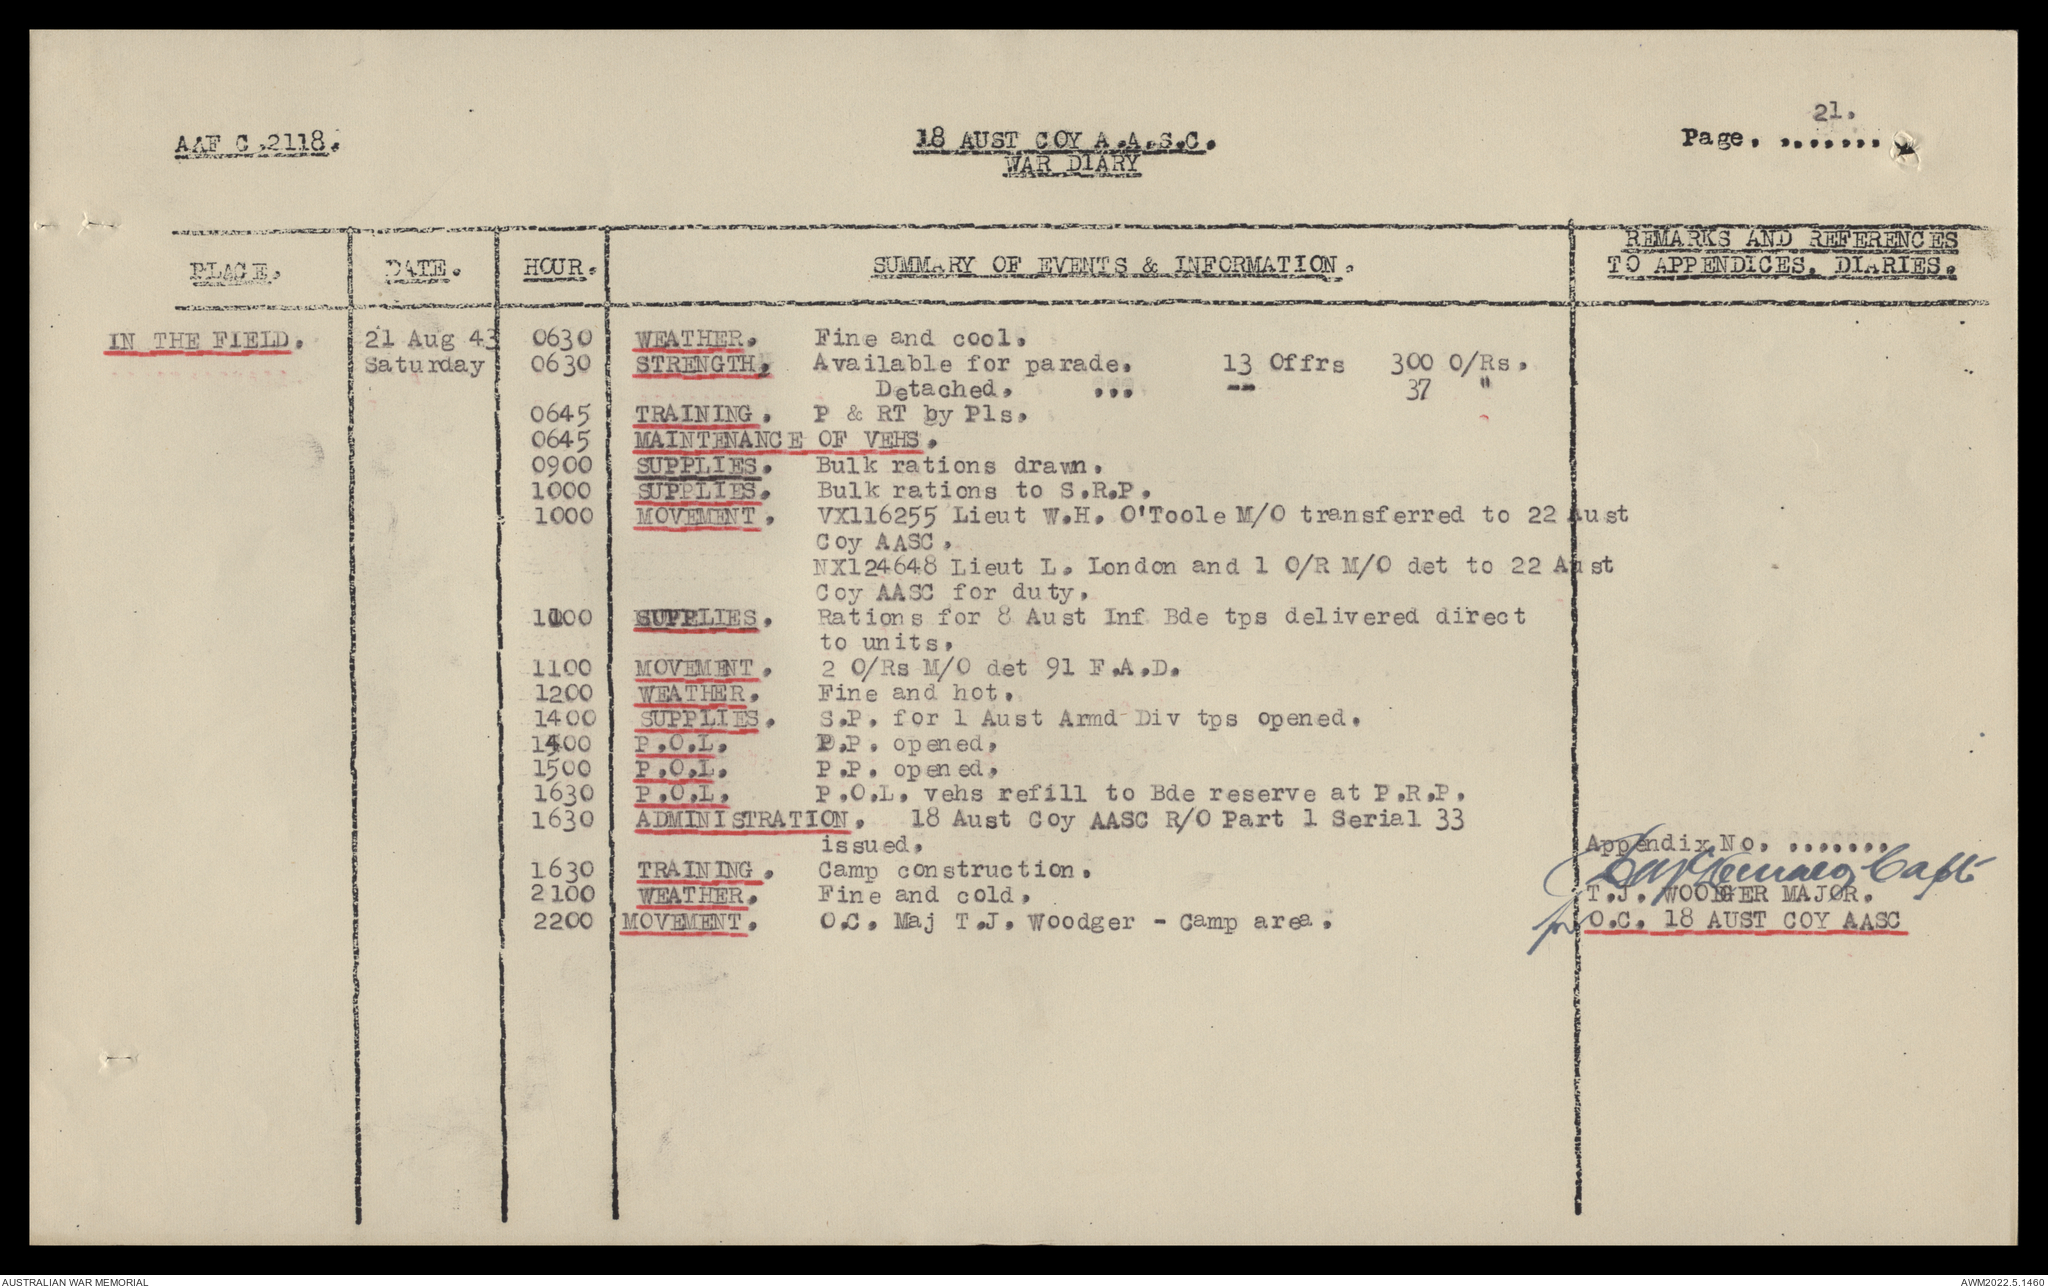 21.
AAF C.2118.
18 AUST COY A.A.S.C.
Page. ........
WAR DIARY
PLACE. DATE. HOUR. SUMMARY OF EVENTS & INFORMATION. REMARKS AND REFERENCES TO APPENDICES, DIARIES.
IN THE FIELD. 21 Aug 43 0630 WEATHER. Fine and cool.
Saturday 0630 STRENGTH. Available for parade. 13 Offrs 300 O/Rs.
Detached. ... -- 37 "
0645 TRAINING. P & RT by Pls.
0645 MAINTENANCE OF VEHS.
0900 SUPPLIES. Bulk rations drawn.
1000 SUPPLIES. Bulk rations to S.R.P.
1000 MOVEMENT. VX116255 Lieut W.H. O'Toole M/O transferred to 22 Aust
Coy AASC.
NX124648 Lieut L. London and 1 O/R M/O det to 22 Aust
Coy AASC for duty.
1100 SUPPLIES. Rations for 8 Aust Inf Bde tps delivered direct
to units.
1100 MOVEMENT. 2 O/Rs M/O det 91 F.A.D.
1200 WEATHER. Fine and hot.
1400 SUPPLIES. S.P. for 1 Aust Armd Div tps opened.
1400 P.O.L. P.P. opened.
1500 P.O.L. P.P. opened.
1630 P.O.L. P.O.L. vehs refill to Bde reserve at P.R.P.
1630 ADMINISTRATION. 18 Aust Coy AASC R/O Part 1 Serial 33
issued.
Appendix No. .......
1630 TRAINING. Camp construction.
Capt
2100 WEATHER. Fine and cold.
T.J. WOODGER MAJOR.
2200 MOVEMENT. O.C. Maj T.J. Woodger - Camp area.
O.C. 18 AUST COY AASC
AUSTRALIAN WAR MEMORIAL
AWM2022.5.1460